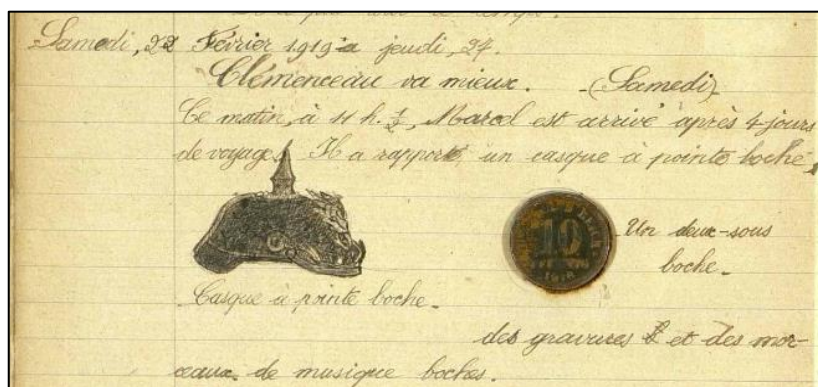 Samedi, 22 Février 1919 a jeudi, 27.
Clémenceau va mieux. - (Samedi)
Ce matin, à 11 h. ½, Marcel est arrivé après 4 jours
de voyage. Il a rapporté un casque à pointe boche,
10
Un deux-sous
boche.
Casque à pointe boche.
des gravures et des mor-
ceaux de musique boches.